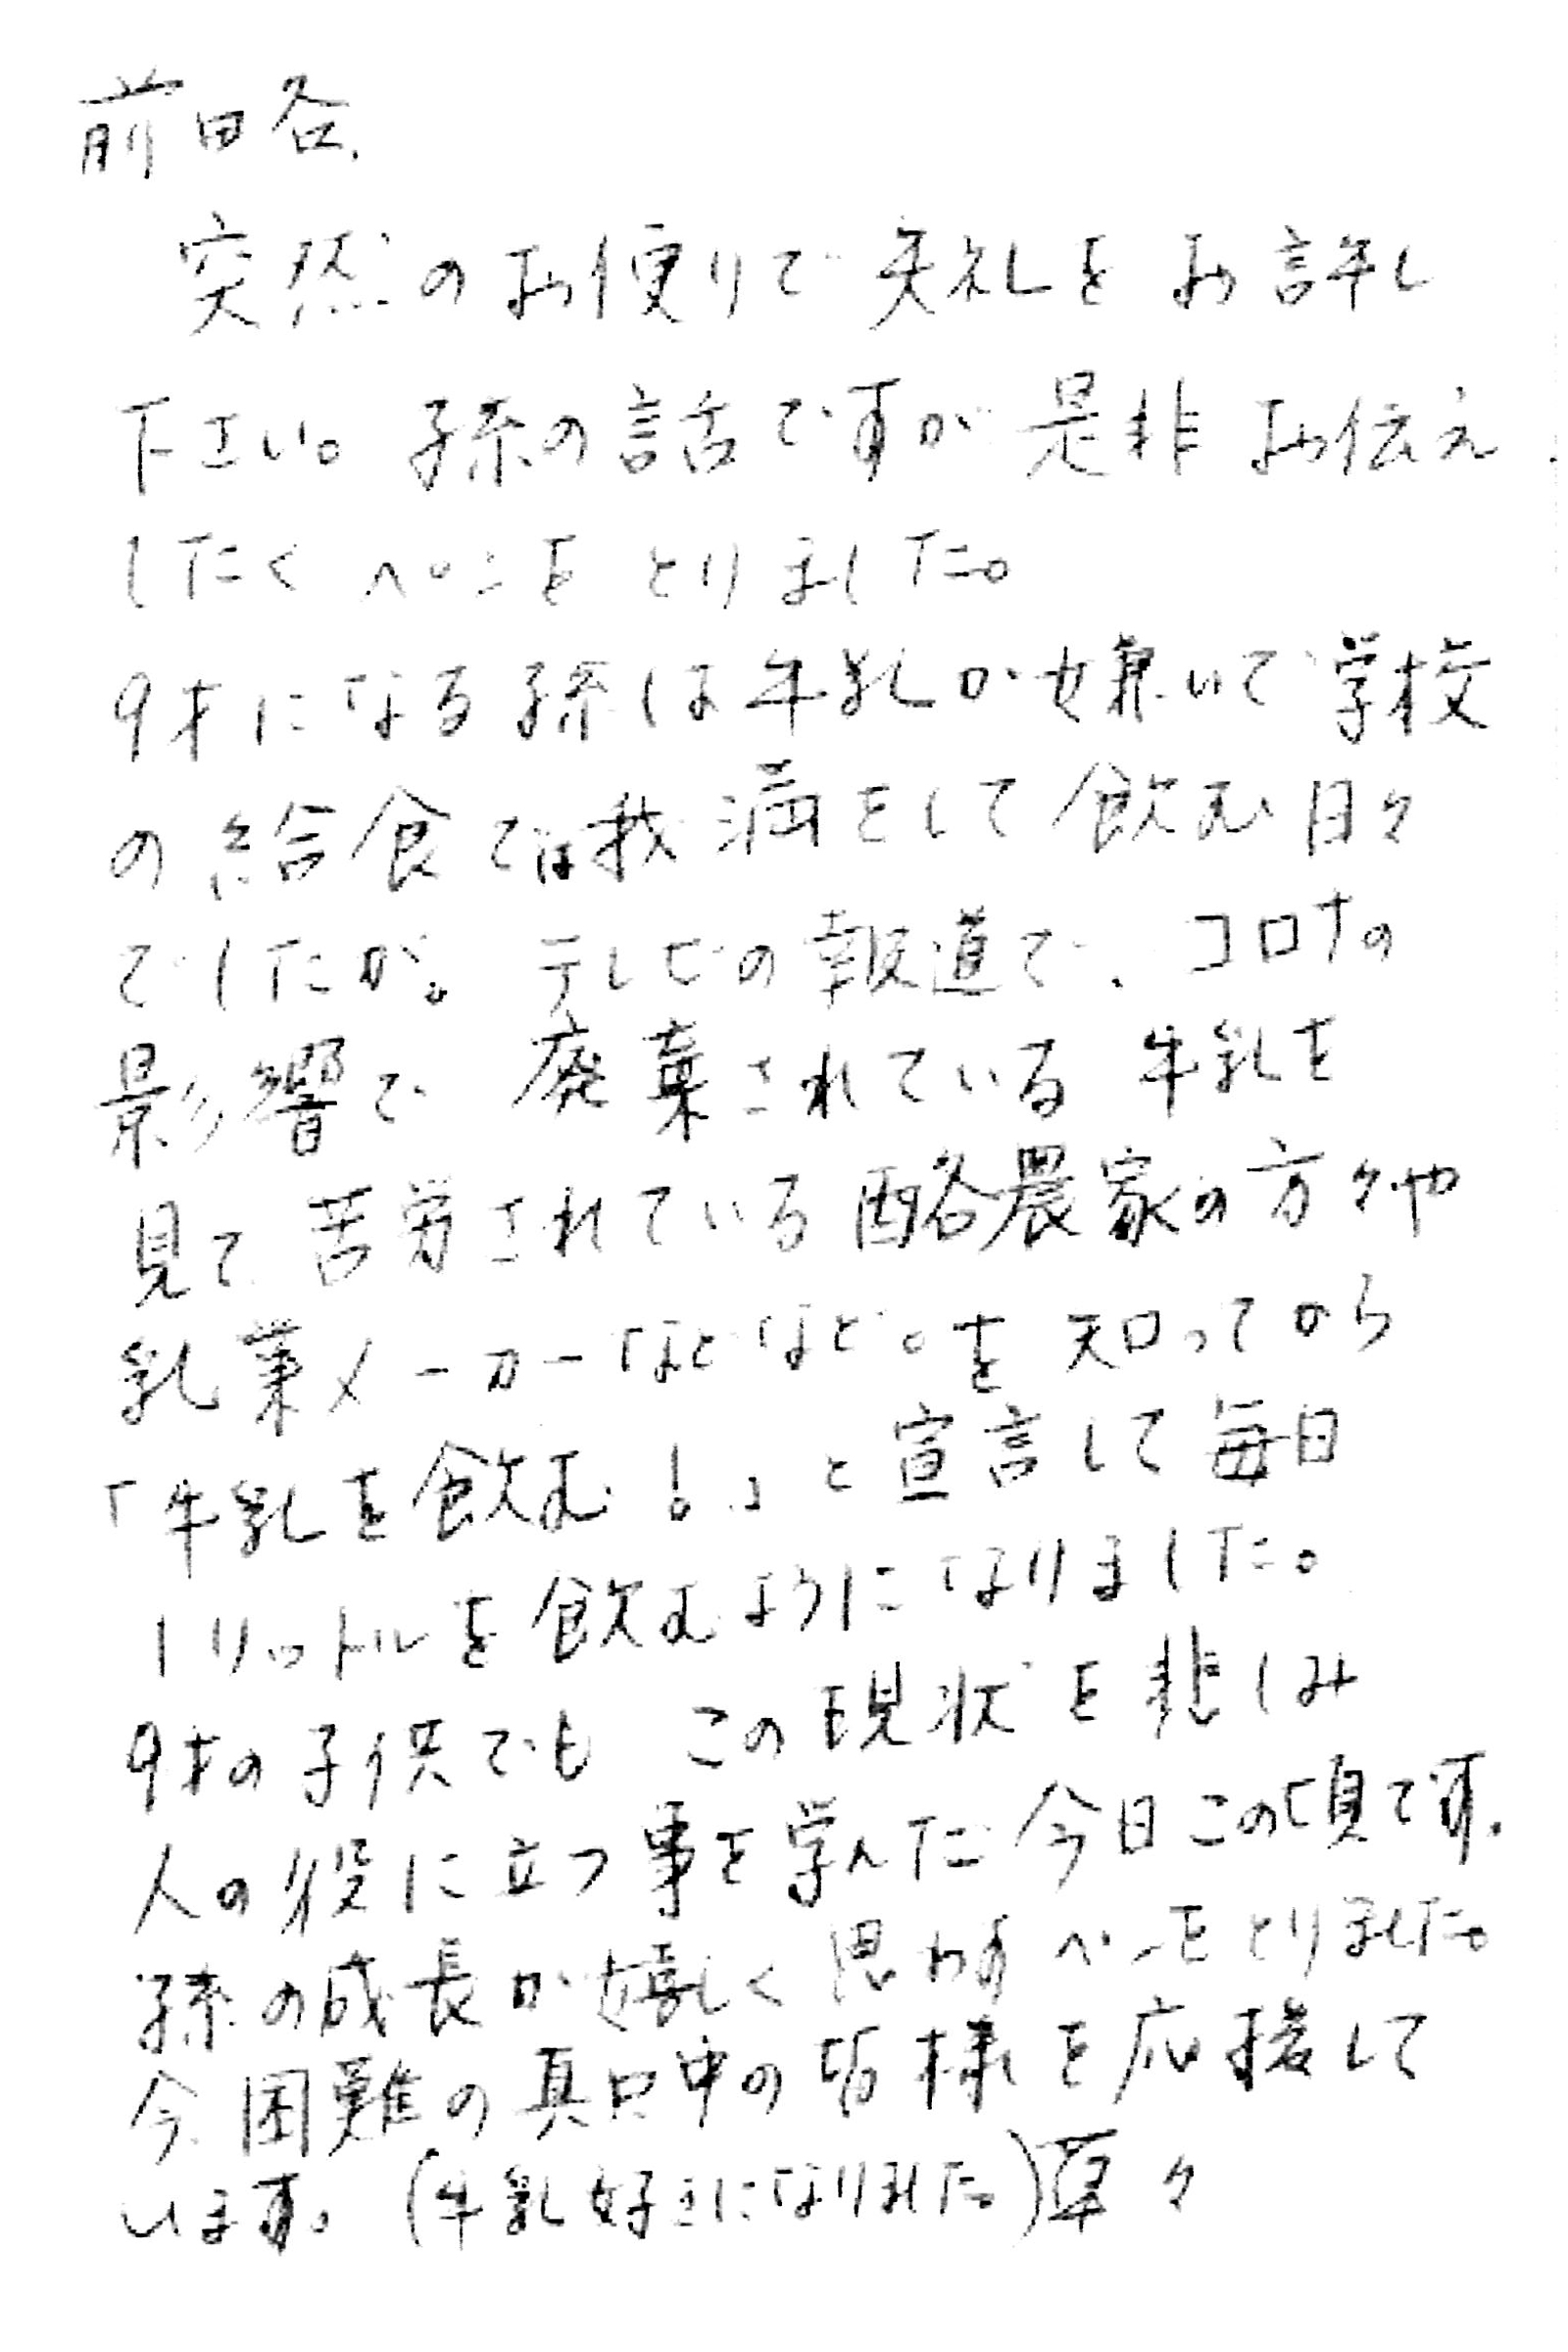 前田各.
突然のお便りで失礼をお許し
下さい。孫の話ですが是非お伝え
したくペンをとりました。
9才になる孫は牛乳が嫌いで学校
の給食では我満をして飲む日々
でしたが。テレビの報道で、コロナの
影響で廃棄されている牛乳を
見て苦労されている酪農家の方々や
乳業メーカーなどなど。を知ってから
「牛乳を飲む!」と宣言して毎日
1リットルを飲むようになりました。
9才の子供でもこの現状を悲しみ
人の役に立つ事を学んだ今日この頃です.
孫の成長が嬉しく思わずペンをとりました。
今困難の真只中の皆様を応援して
います。(牛乳好きになりました。)草々